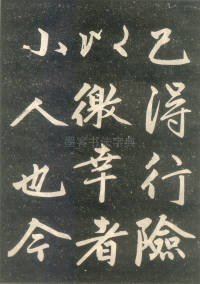 已得行險
以徼幸者
小人也今
墨客书法字典